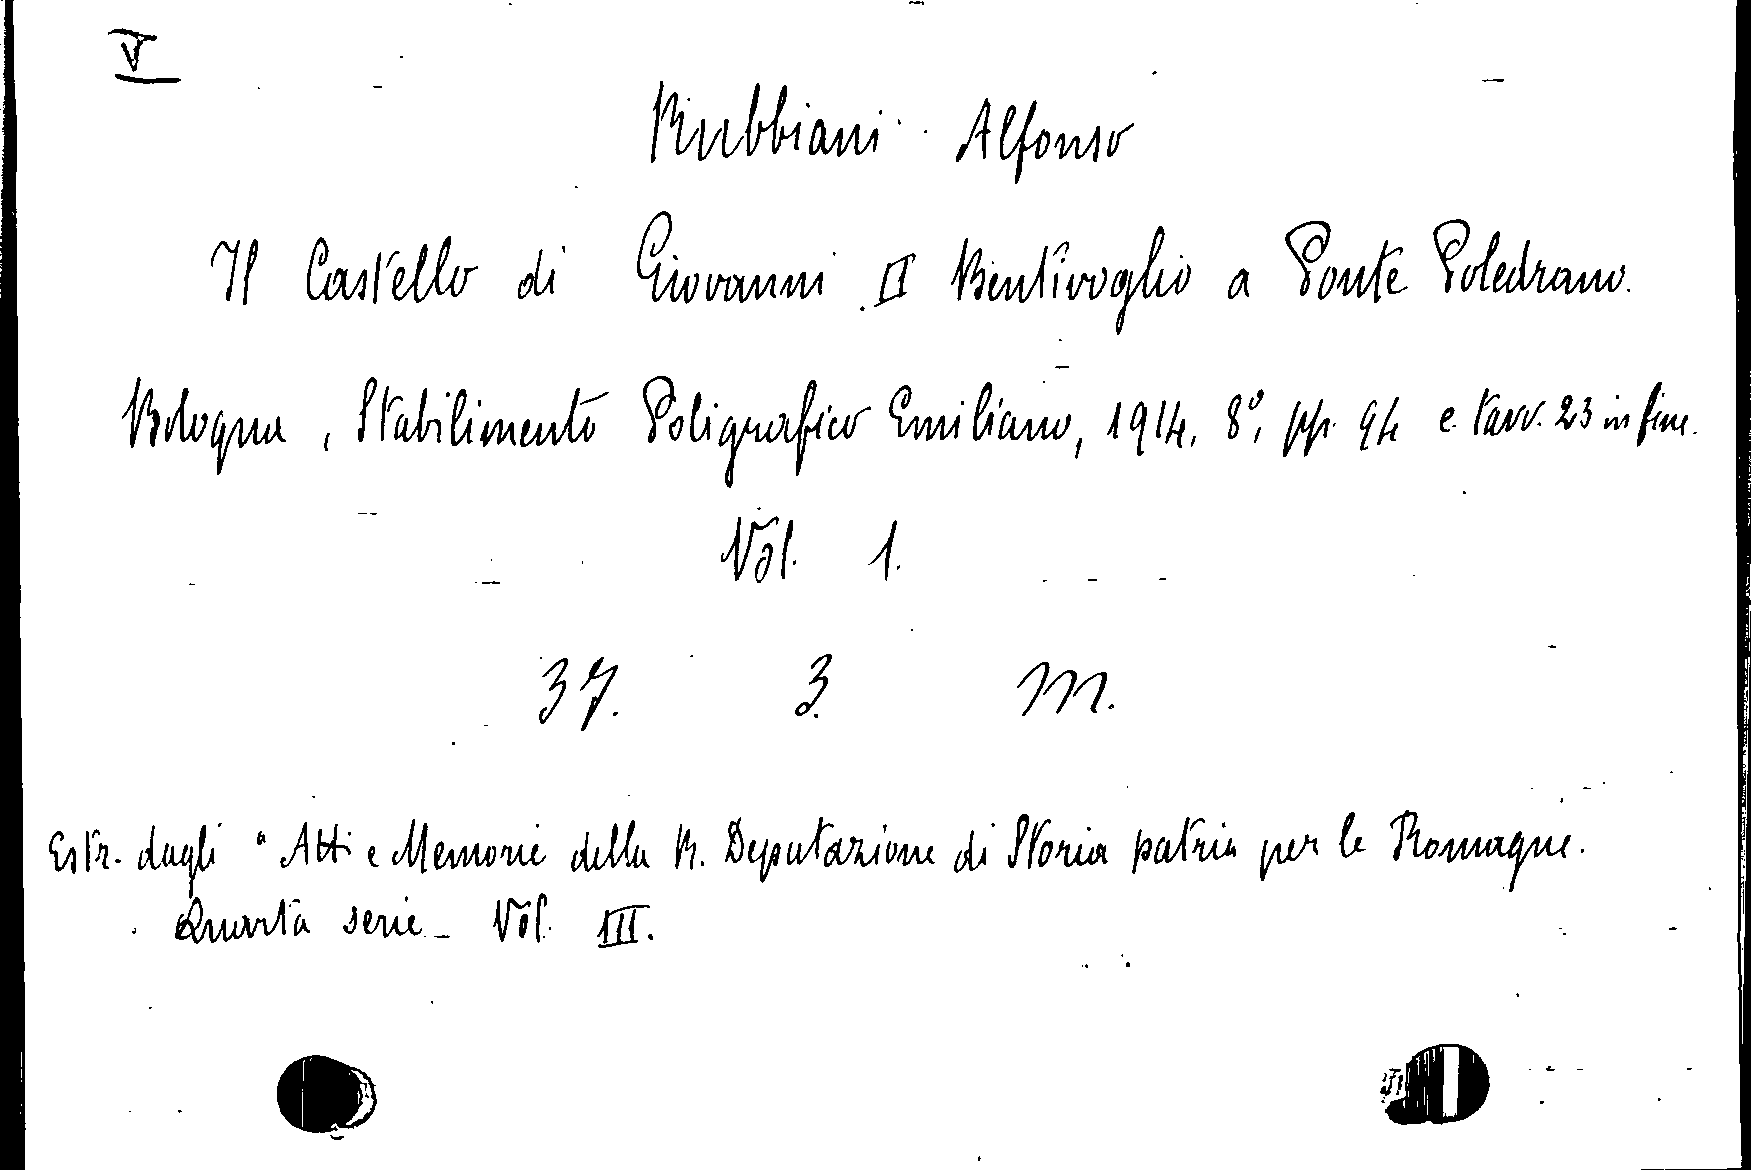 V
Rubbiani Alfonso
Il Castello di Giovanni II Bentivoglio a Ponte Poledrano.
Bologna, Stabilimento Poligrafico Emiliano, 1914, 8°, pp. 94 e tavv. 23 in fine.
Vol. 1.
37. 3. M.
Estr. dagli "Atti e Memorie della R. Deputazione di Storia patria per le Romagne.
Quarta serie - Vol. III.